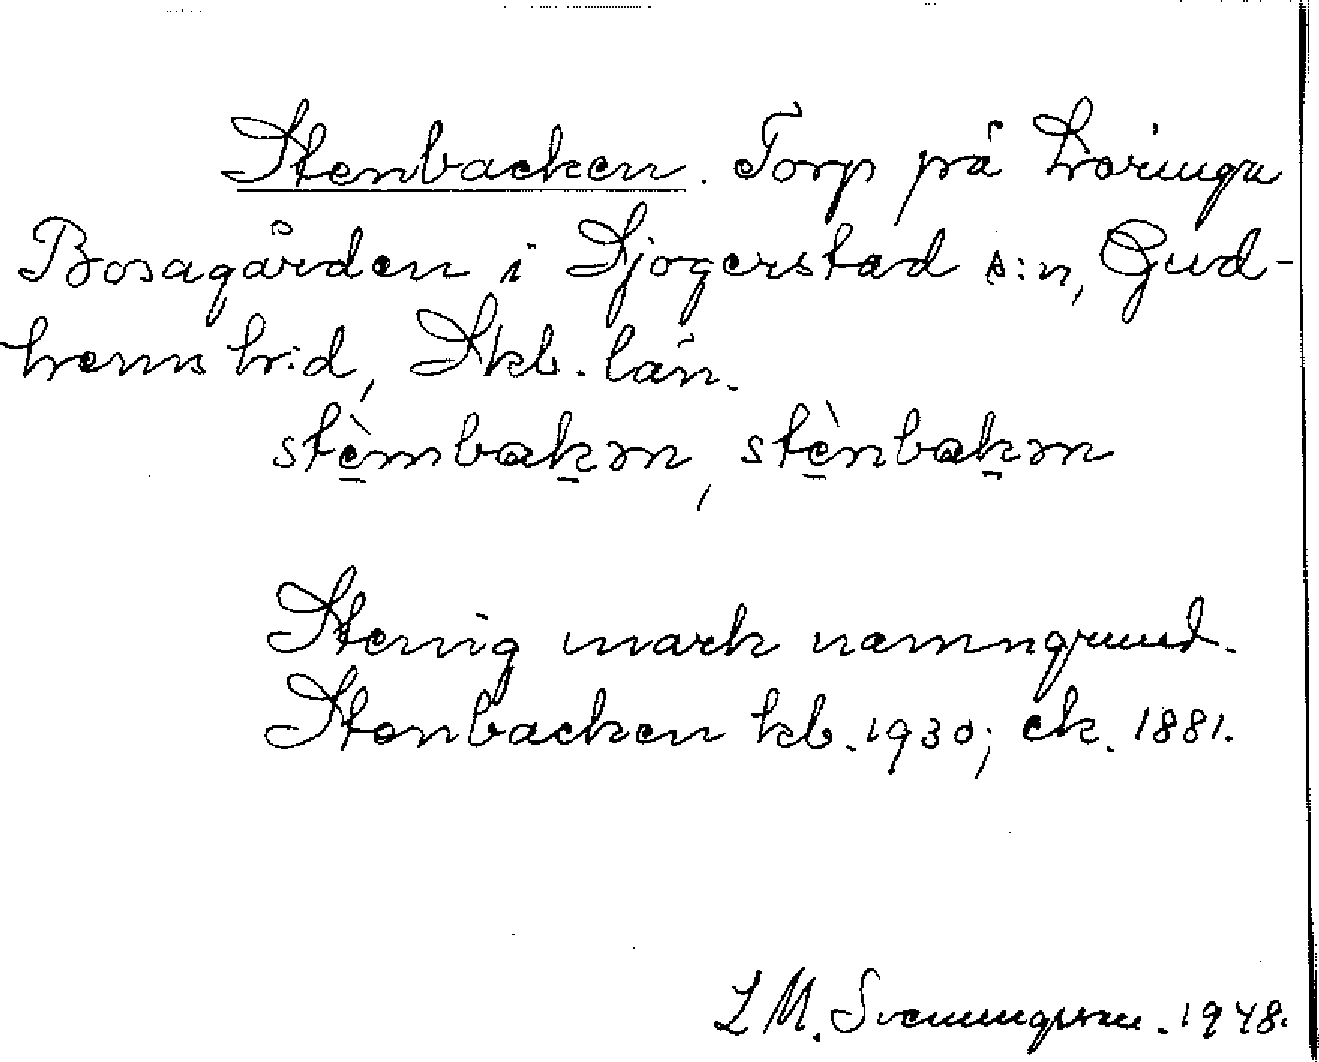 Stenbacken. Torp på Häringa
Bosagården i Sjogerstad s:n, Gud-
hems h:d, Skb. län.
stèmbakɜn, stènbakɜn
Stenig mark namngrund.
Stenbacken kb. 1930; ek. 1881.
L M. Svenungsson. 1948.